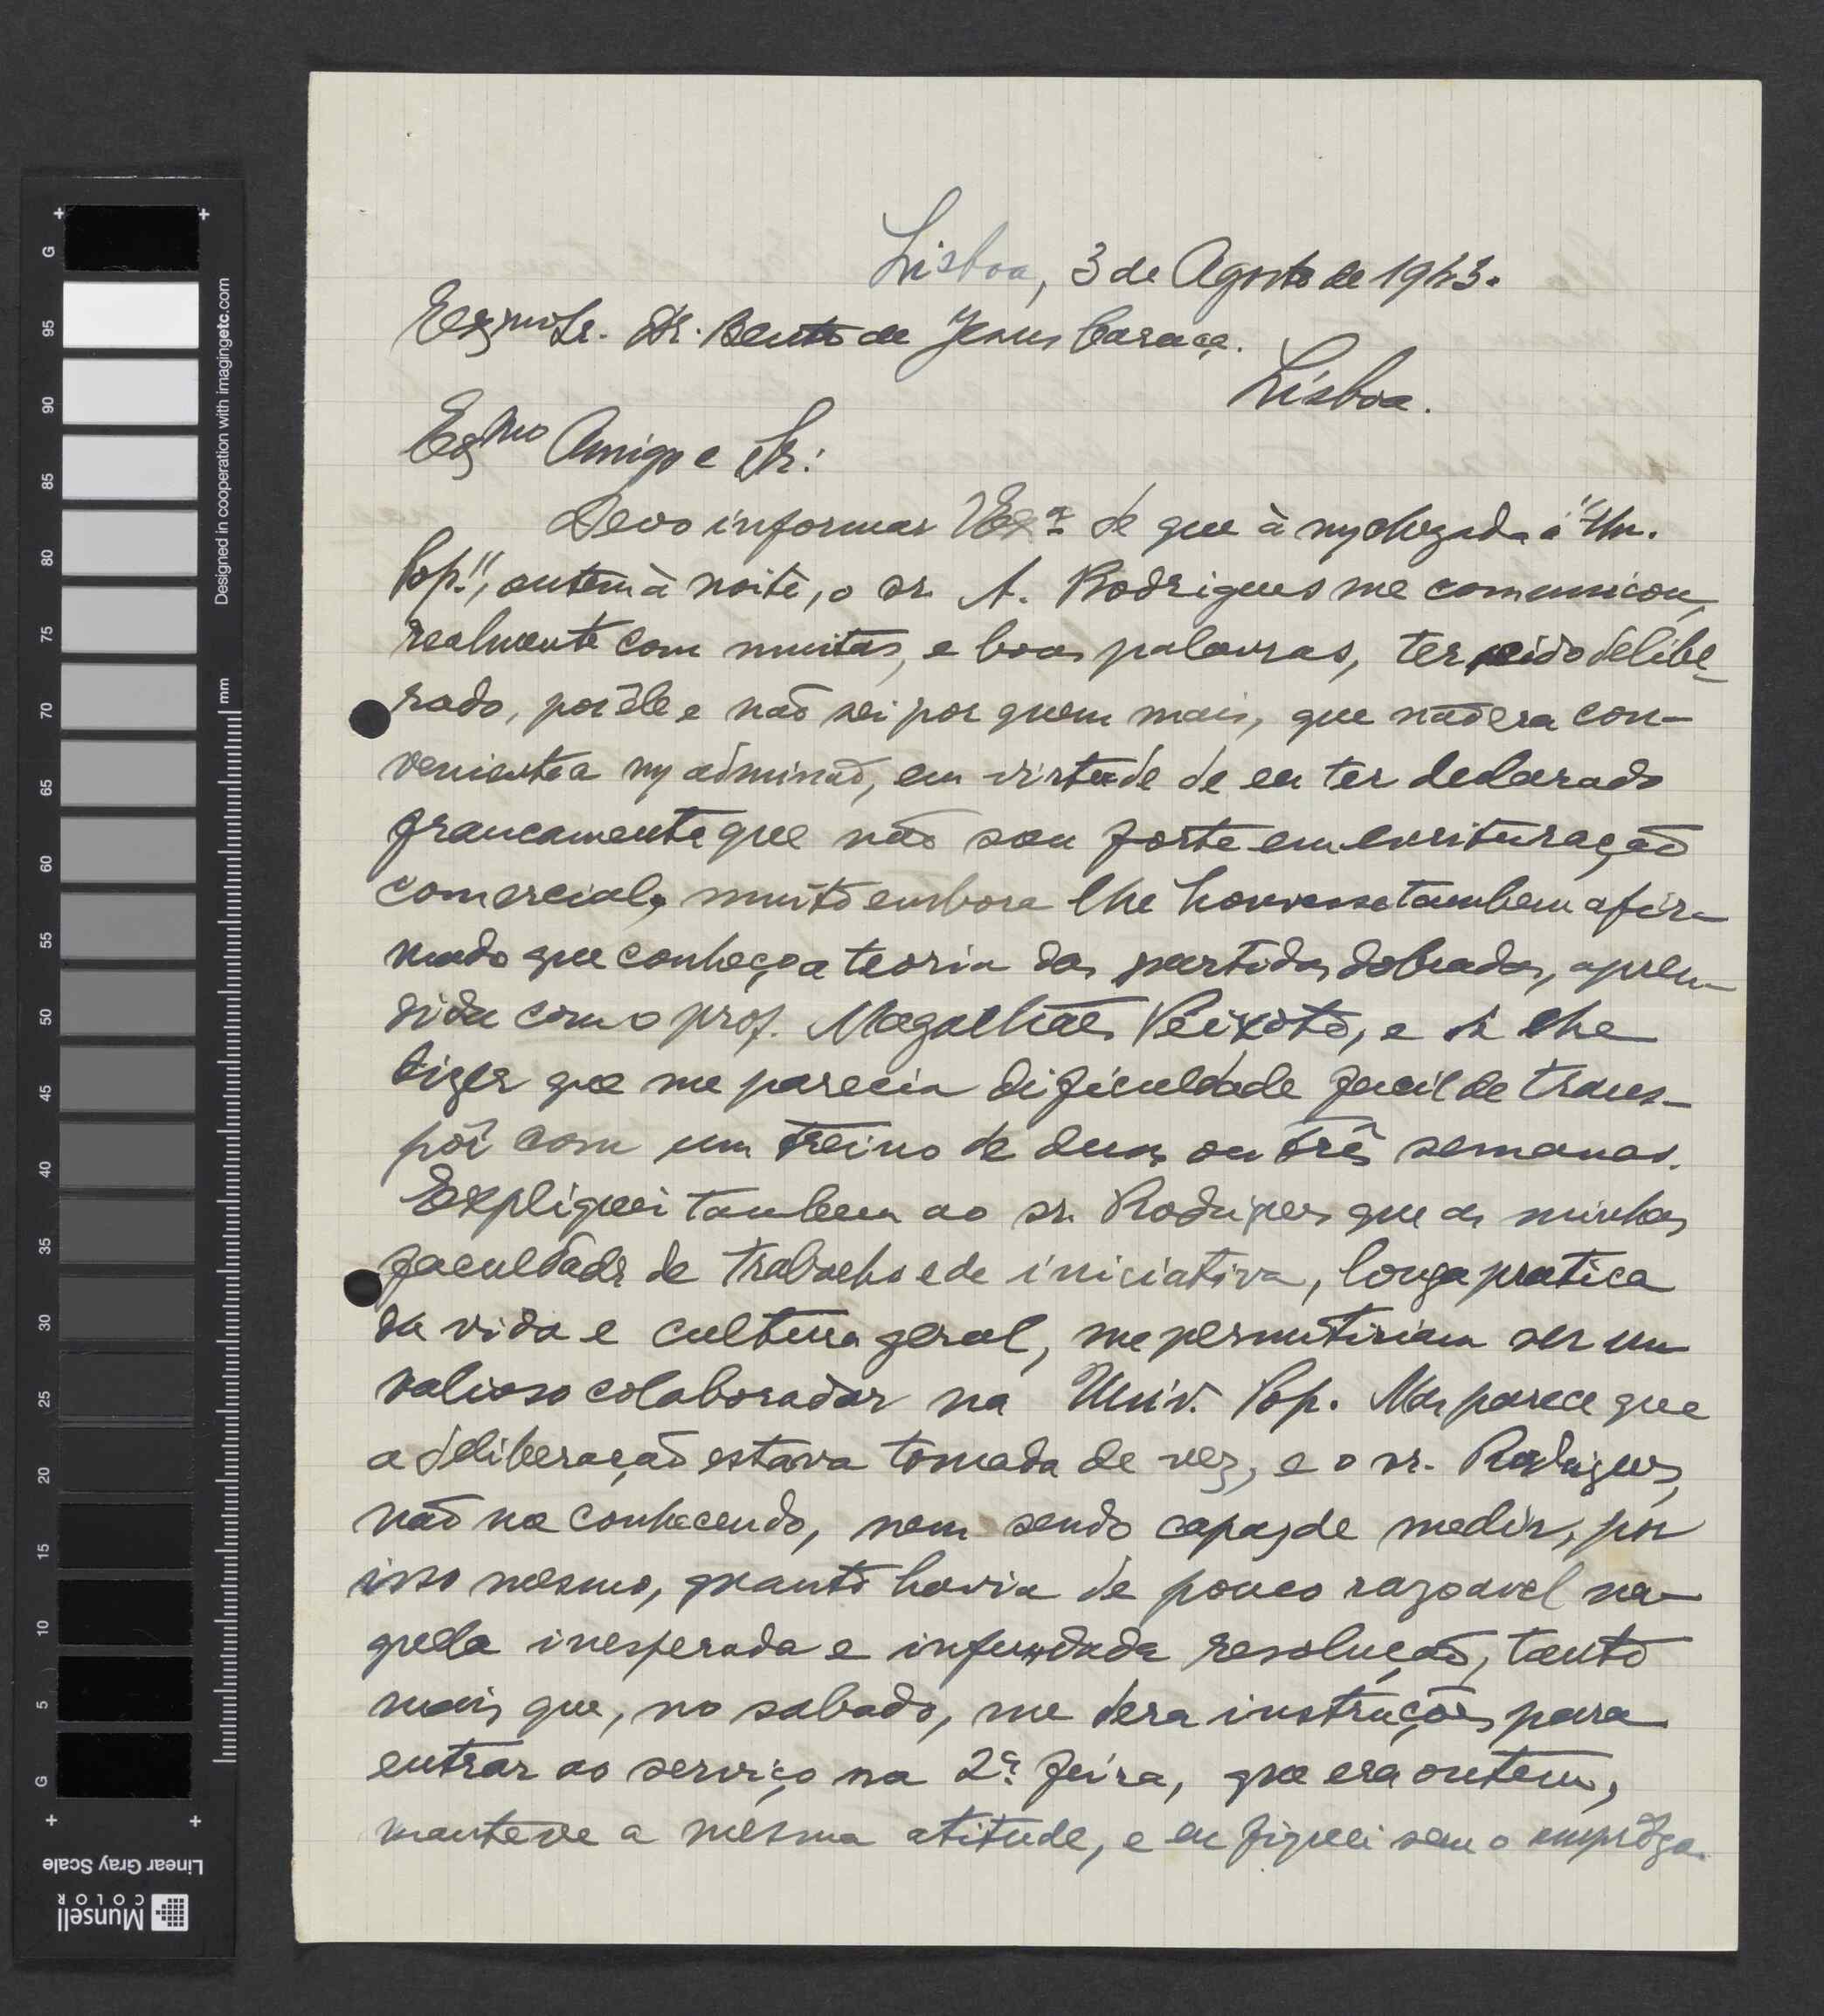 Lisboa, 3 de Agosto de 1943.
Exmo Sr. Dr. Bento de Jesus Caraça.
Lisboa.
Exmo Amigo e Sr:
Devo informar VExª de que à my chegada á "Un.
Pop.", ontem à noite, o sr. A. Rodrigues me comunicou,
realmente com muitas, e boas palavras, ter sido delibe-
rado, por êle e não sei por quem mais, que não era con-
veniente a my adminão, em virtude de eu ter declarado
francamente que não sou forte em escrituração
comercial, muito embora lhe houvesse tambem afir-
mado que conheço a teoria das partidas dobradas, apren-
dida com o prof. Magalhães Peixoto, e de lhe
dizer que me parecia dificuldade facil de trans-
pôr com um treino de duas ou três semanas.
Expliquei tambem ao sr. Rodrigues que as minhas
faculdads de trabalho e de iniciativa, longa pratica
da vida e cultura geral, me permitiriam ser um
valioso colaborador na Univ. Pop. Mas parece que
a deliberação estava tomada de vez, e o sr. Rodrigues,
não me conhecendo, nem sendo capaz de medir, por
isso mesmo, quanto havia de pouco razoavel na-
quela inesperada e infundada resolução, tanto
mais que, no sabado, me dera instruções para
entrar ao serviço na 2ª feira, que era ontem,
manteve a mesma atitude, e eu fiquei sem o emprêgo.
G 95 90 85 80 75 70 65 60 55 50 45 40 35 30 25 20 15 10 5 G
mm
Designed in cooperation with imagingetc.com
Linear Gray Scale
Munsell
COLOR